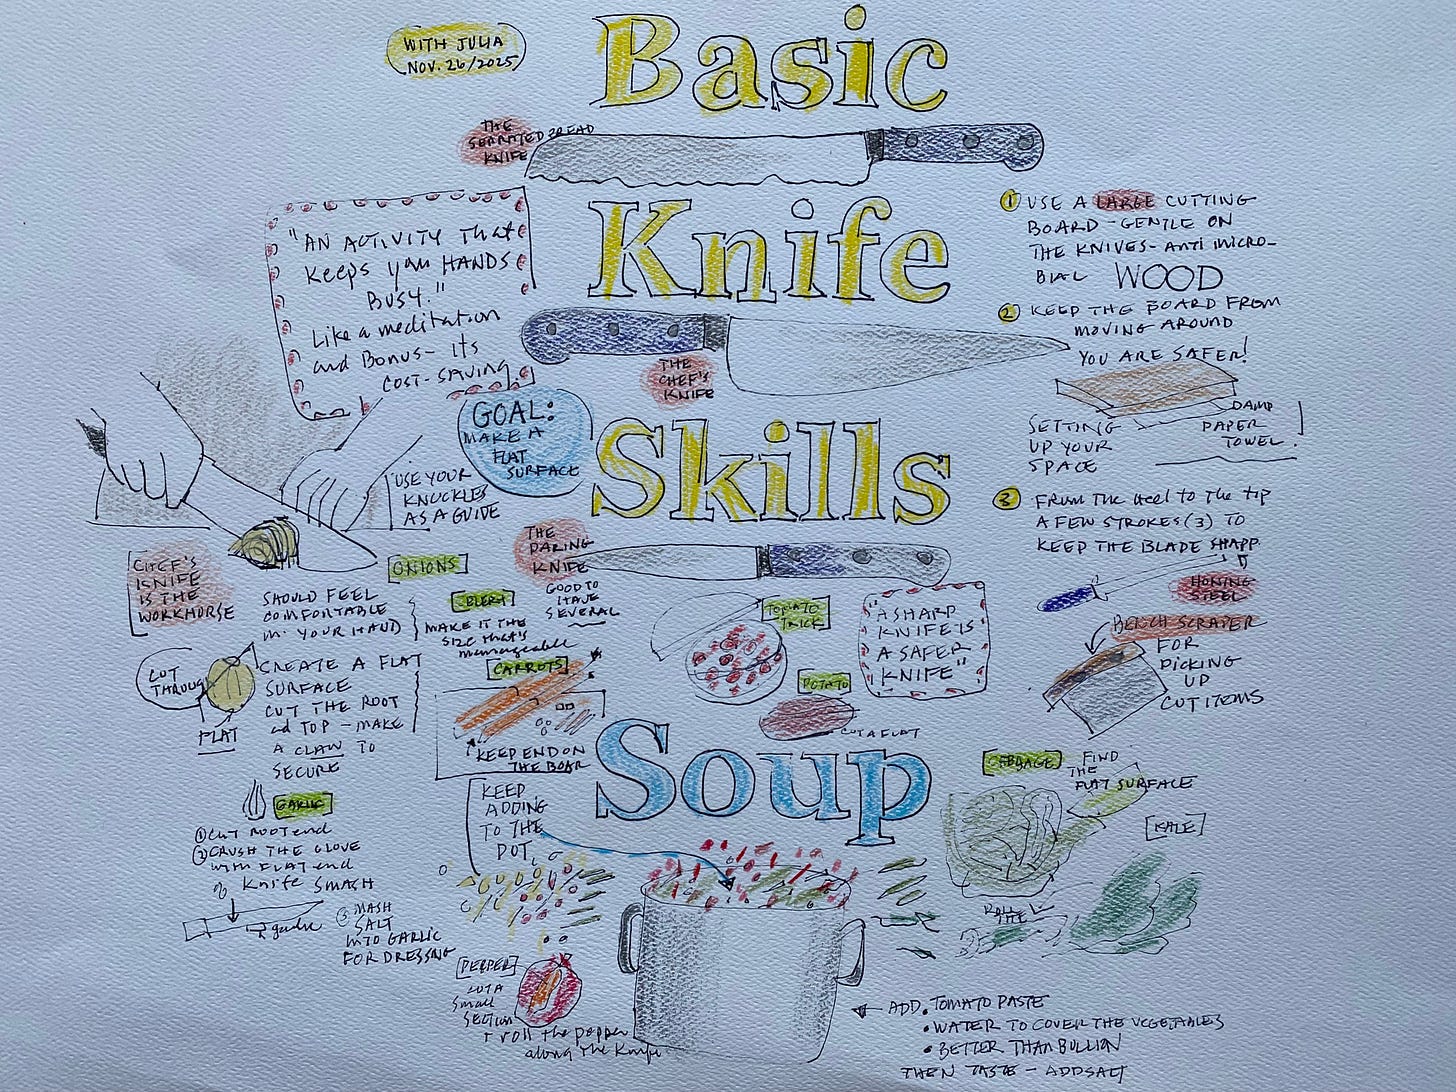 WITH JULIA
NOV. 26/2025
Basic
THE
SERRATED BREAD
KNIFE
Knife
"AN ACTIVITY that
keeps your HANDS
BUSY."
Like a meditation
and Bonus- its
COST-SAVING
THE
CHEF'S
KNIFE
Skills
GOAL:
MAKE A
FLAT
SURFACE
USE YOUR
KNUCKLES
AS A GUIDE
1 USE A LARGE CUTTING
BOARD - GENTLE ON
THE KNIVES - ANTI MICRO-
BIAL WOOD
2 KEEP THE BOARD FROM
MOVING AROUND
YOU ARE SAFER!
SETTING
UP YOUR
SPACE
DAMP
PAPER
TOWEL.
3 FROM THE HEEL TO THE TIP
A FEW STROKES (3) TO
KEEP THE BLADE SHARP
HONING
STEEL
BENCH SCRAPER
FOR
PICKING
UP
CUT ITEMS
CHEF'S
KNIFE
IS THE
WORKHORSE
SHOULD FEEL
COMFORTABLE
IN YOUR HAND
ONIONS
CUT
THROUGH
FLAT
CREATE A FLAT
SURFACE
CUT THE ROOT
and TOP - MAKE
A CLAW TO
SECURE
THE
PARING
KNIFE
GOOD TO
HAVE
SEVERAL
CELERY
MAKE IT THE
SIZE that's
manageable
CARROTS
KEEP END ON
THE BOAR
TOMATO
TRICK
POTATO
CUT A FLAT
"A SHARP
KNIFE IS
A SAFER
KNIFE"
Soup
GARLIC
1 CUT ROOT end
2 CRUSH THE CLOVE
with FLAT end
of Knife SMASH
garlic
3 MASH
SALT
INTO GARLIC
FOR DRESSING
KEEP
ADDING
TO THE
POT
[PEPPER]
CUT A
small
SECTION
+ roll the pepper
along the knife
CABBAGE
FIND
THE
FLAT SURFACE
[KALE]
ROLL
THE
ADD. TOMATO PASTE
• WATER TO COVER THE VEGETABLES
• BETTER THAN BULLION
THEN TASTE - ADD SALT